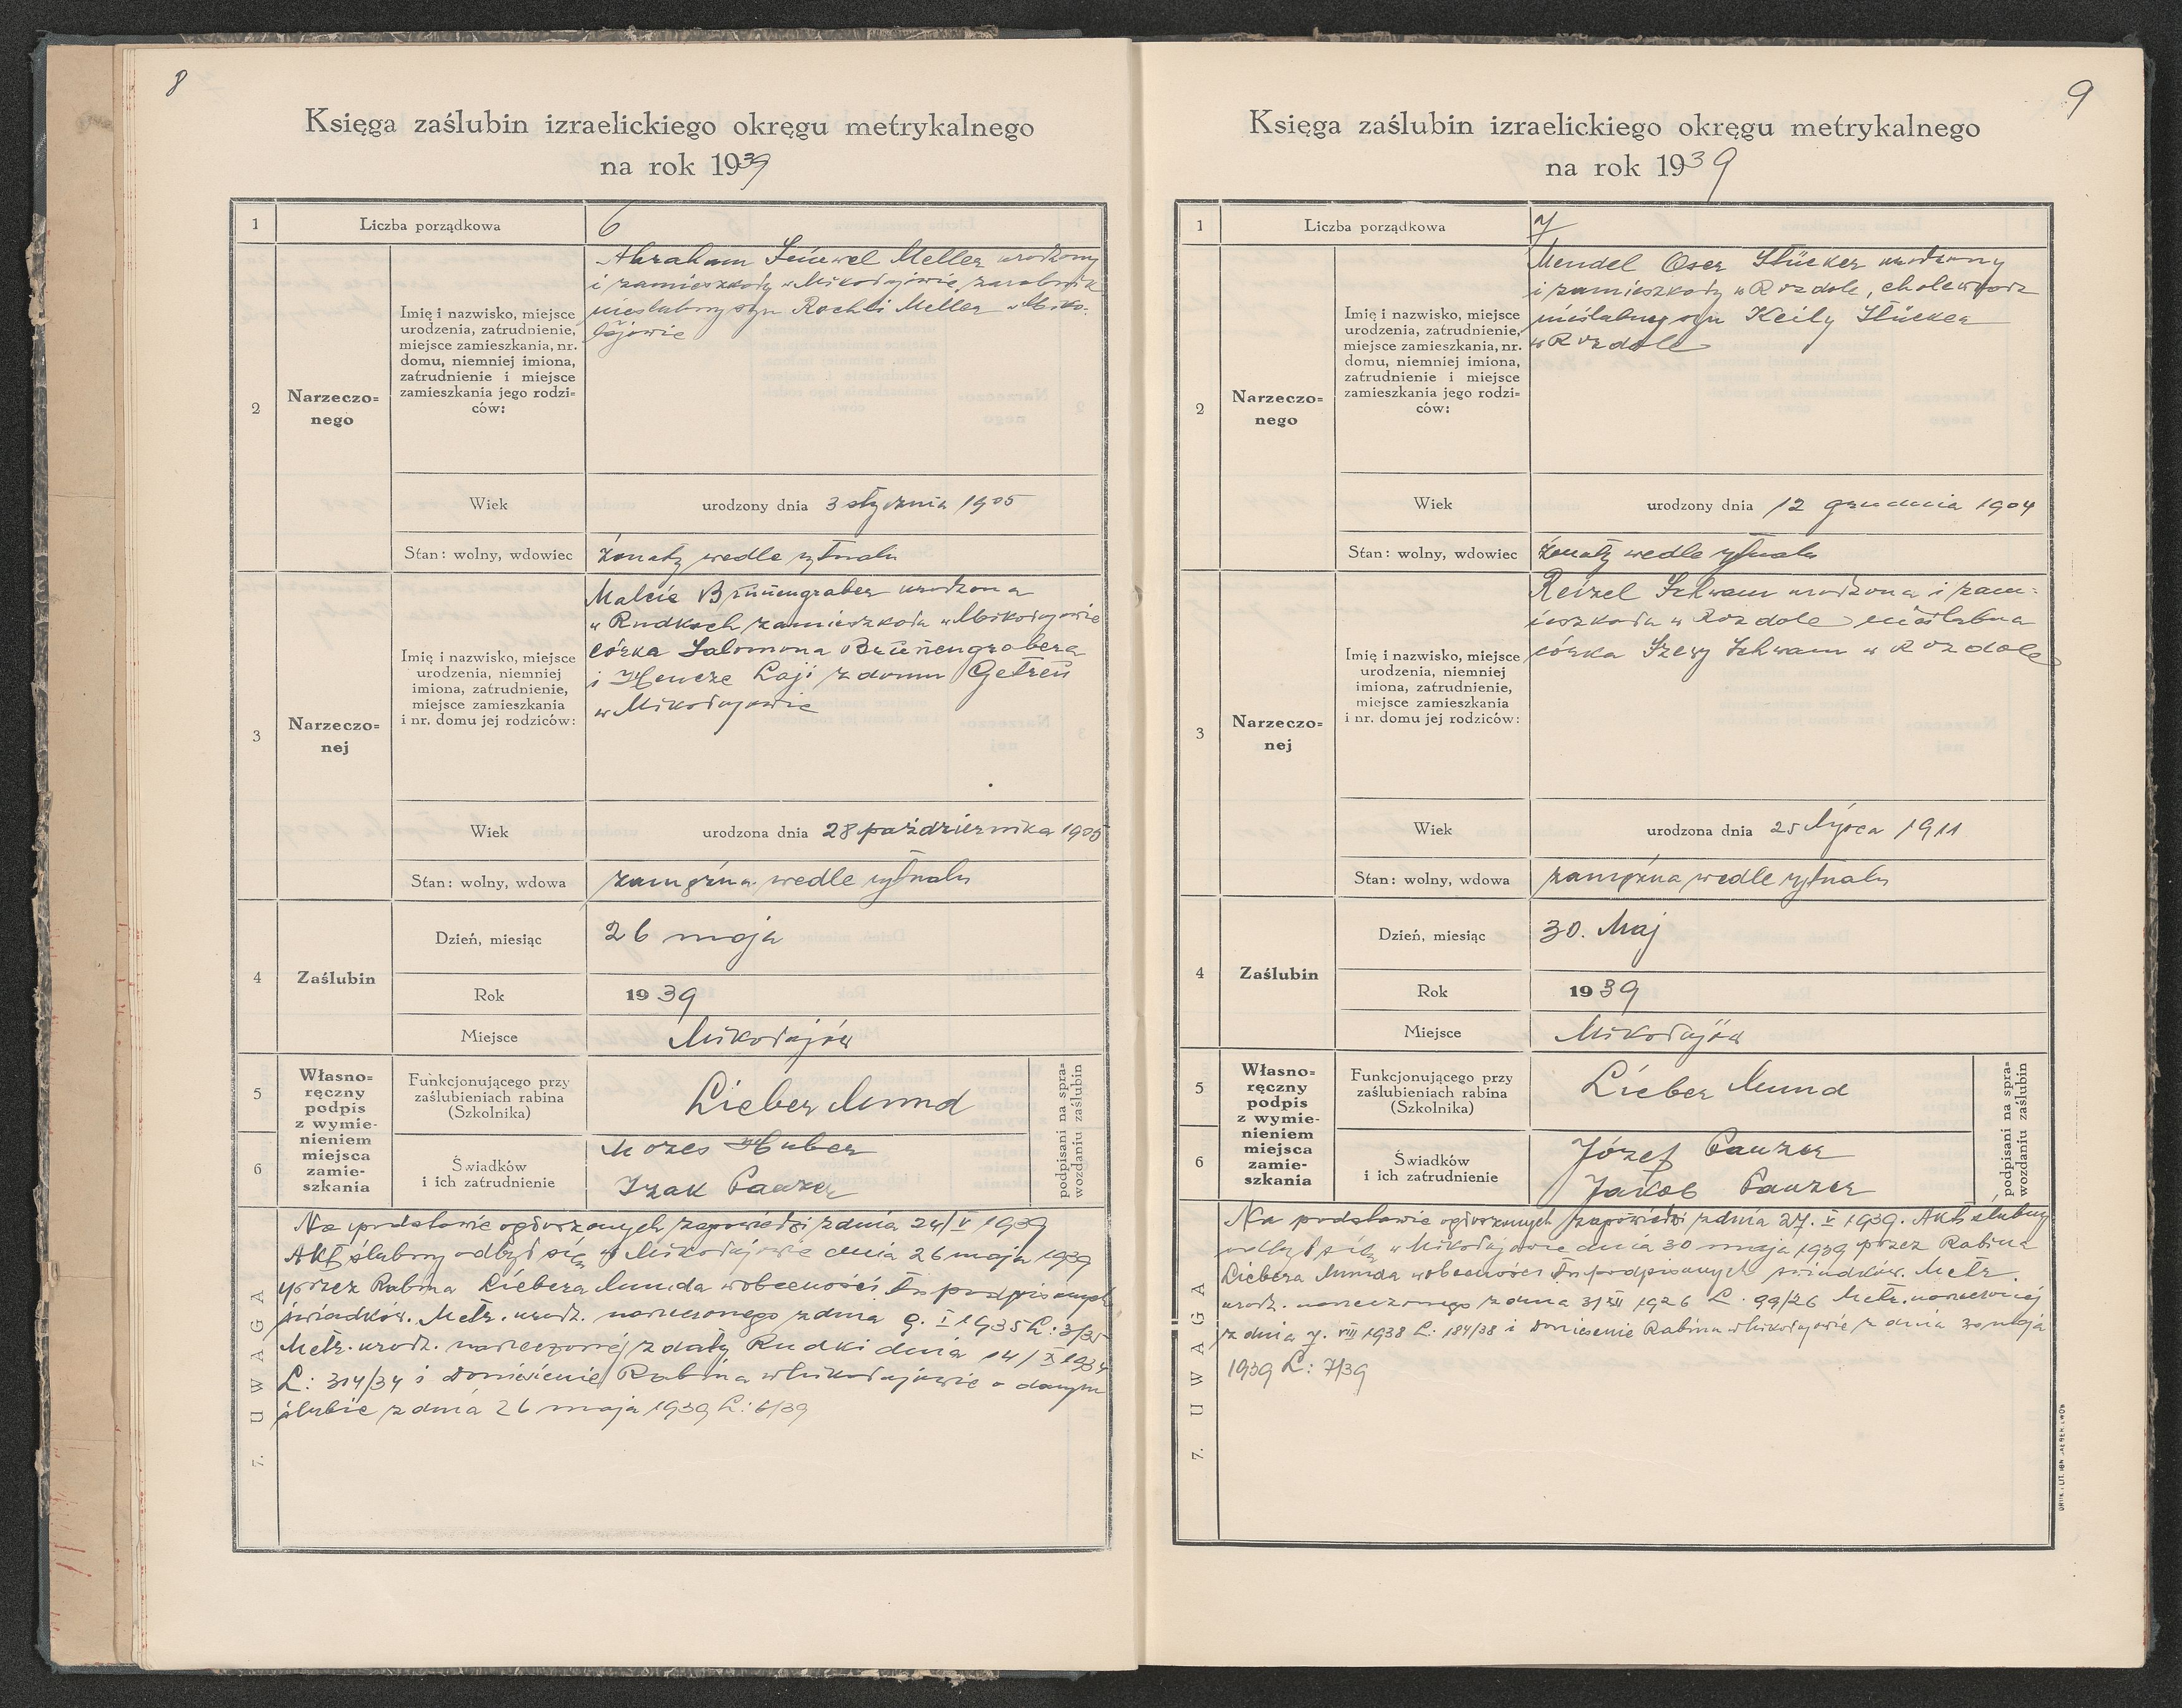 8
Księga zaślubin izraelickiego okręgu metrykalnego
na rok 1939
1
Liczba porządkowa
6
2
Narzeczo=
nego
Imię i nazwisko, miejsce
urodzenia, zatrudnienie,
miejsce zamieszkania, nr.
domu, niemniej imiona,
zatrudnienie i miejsce
zamieszkania jego rodzi=
ców:
Abraham Meller urodzony
i zamieszkały w Mikołajowie, zarobnik
nieślubny syn Rachli Meller w Miko-
łajowie
Wiek
urodzony dnia 3 stycznia 1905
Stan: wolny, wdowiec
żonaty wedle rytuału
3
Narzeczo=
nej
Imię i nazwisko, miejsce
urodzenia, niemniej
imiona, zatrudnienie,
miejsce zamieszkania
i nr. domu jej rodziców:
Malcie Brünengraber urodzona
w Rudkach zamieszkała w Mikołajowie
córka Salomona Brünengrabera
i Łaji z domu
w Mikołajowie
Wiek
urodzona dnia 28 października 1905
Stan: wolny, wdowa
zamężna wedle rytuału
4
Zaślubin
Dzień, miesiąc
26 maja
Rok
1939
Miejsce
Mikołajów
5
6
Własno=
ręczny
podpis
z wymie-
nieniem
miejsca
zamie-
szkania
Funkcjonującego przy
zaślubieniach rabina
(Szkolnika)
Lieber Mund
Świadków
i ich zatrudnienie
Mozes Huber
Izak Panzer
podpisani na spra-
wozdaniu zaślubin
7. UWAGA
Na podstawie ogłoszonych zapowiedzi z dnia 24/V 1939
Akt ślubny odbył się w Mikołajowie dnia 26 maja 1939
przez Rabina Liebera Munda w obecności tu podpisanych
świadków. Metr. urodz. narzeczonego z dnia 9. I 1935 L: 3/35
Metr. urodz. narzeczonej z daty Rudki dnia 14/X 1934
L: 314/34 i doniesienie Rabina w Mikołajowie o danym
ślubie z dnia 26 maja 1939 L: 6/39
9
Księga zaślubin izraelickiego okręgu metrykalnego
na rok 1939
1
Liczba porządkowa
7
2
Narzeczo=
nego
Imię i nazwisko, miejsce
urodzenia, zatrudnienie,
miejsce zamieszkania, nr.
domu, niemniej imiona,
zatrudnienie i miejsce
zamieszkania jego rodzi=
ców:
Mendel Oser Stücker urodzony
i zamieszkały w Rozdole, cholewkarz
nieślubny syn Keily Stücker
w Rozdole
Wiek
urodzony dnia 12 grudnia 1904
Stan: wolny, wdowiec
żonaty wedle rytuału
3
Narzeczo=
nej
Imię i nazwisko, miejsce
urodzenia, niemniej
imiona, zatrudnienie,
miejsce zamieszkania
i nr. domu jej rodziców:
Reizel Schwam urodzona i zam-
ieszkała w Rozdole nieślubna
córka Szewy Schwam w Rozdole
Wiek
urodzona dnia 25 lipca 1911
Stan: wolny, wdowa
zamężna wedle rytuału
4
Zaślubin
Dzień, miesiąc
30. Maj
Rok
1939
Miejsce
Mikołajów
5
6
Własno=
ręczny
podpis
z wymie-
nieniem
miejsca
zamie-
szkania
Funkcjonującego przy
zaślubieniach rabina
(Szkolnika)
Lieber Mund
Świadków
i ich zatrudnienie
Józef Panzer
Jakob Panzer
podpisani na spra-
wozdaniu zaślubin
7. UWAGA
Na podstawie ogłoszonych zapowiedzi z dnia 27. V 1939. Akt ślubny
odbył się w Mikołajowie dnia 30 maja 1939 przez Rabina
Liebera Munda w obecności tu podpisanych świadków. Metr.
urodz. narzeczonego z dnia 31 XII 1926 L. 99/26 Metr. narzeczonej
z dnia 7. VIII 1938 L: 184/38 i doniesienie Rabina w Mikołajowie z dnia 30 maja
1939 L: 7/39